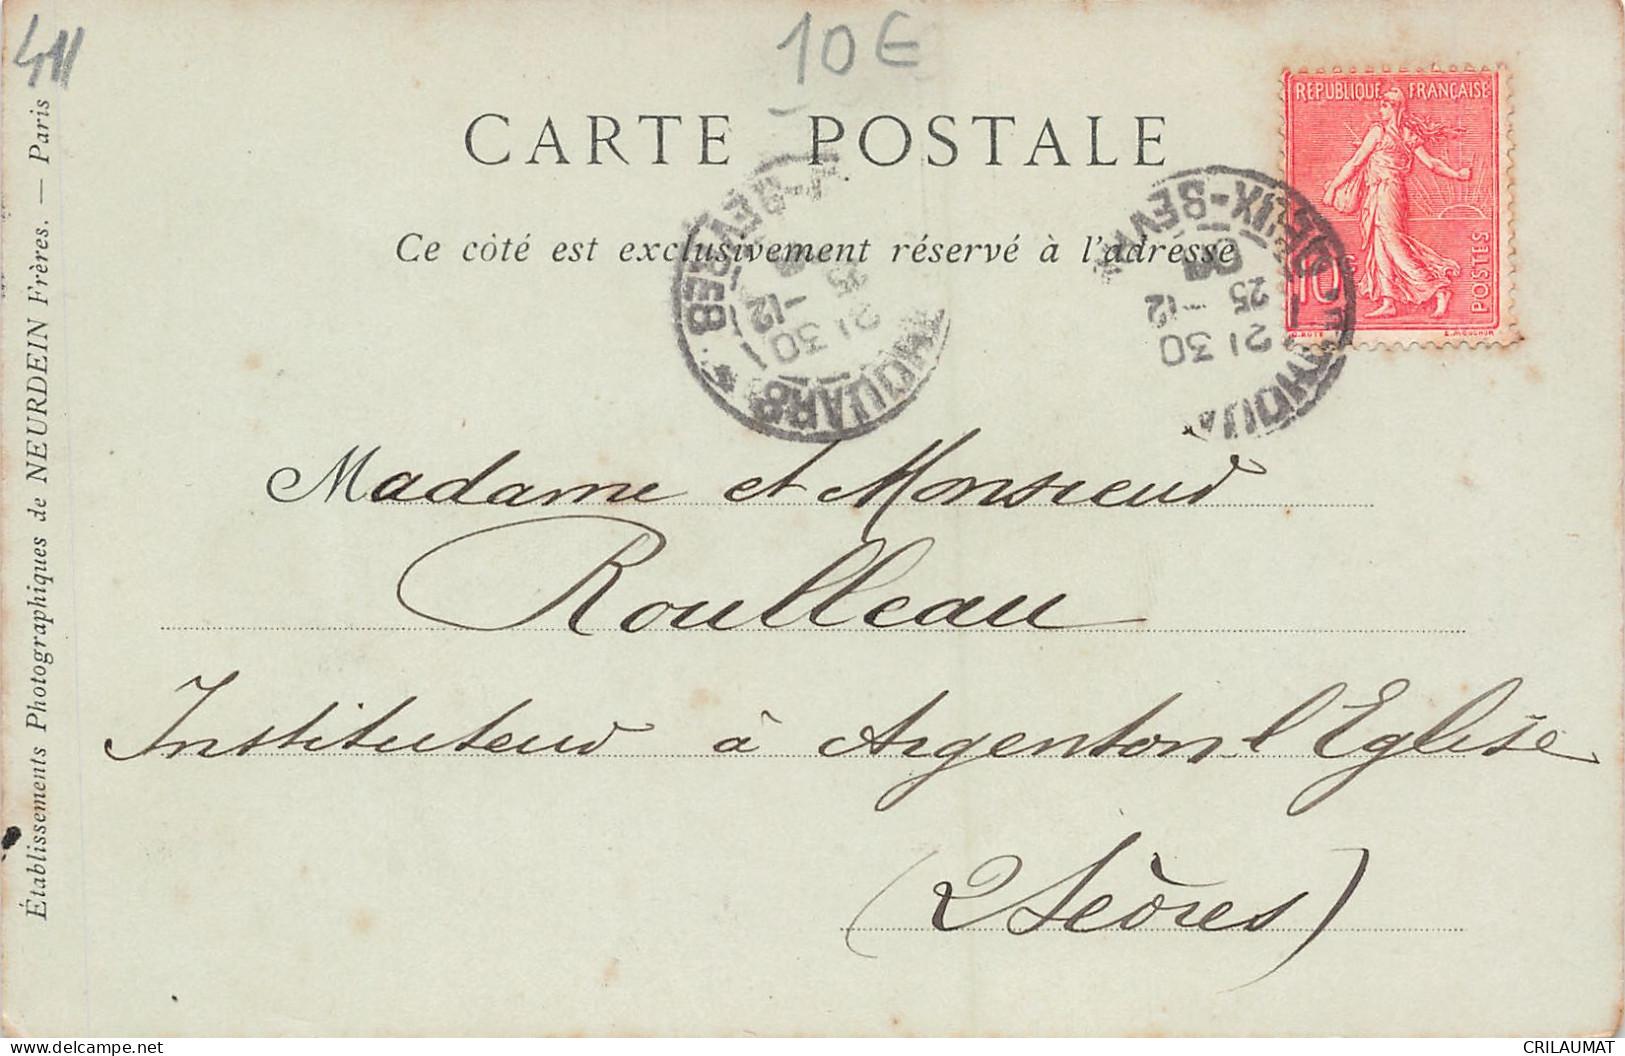 411
10€
CARTE POSTALE
Ce côté est exclusivement réservé à l'adresse
RÉPUBLIQUE FRANÇAISE
POSTES
10c
O. ROTY
E. MOUCHON
21 30
25 -12
21 30
25 -12
Madame et Monsieur
Roulleau
Instituteur à Argenton l'Eglise
(2 Sèvres)
Établissements Photographiques de NEURDEIN Frères. — Paris
www.delcampe.net
CRILAUMAT